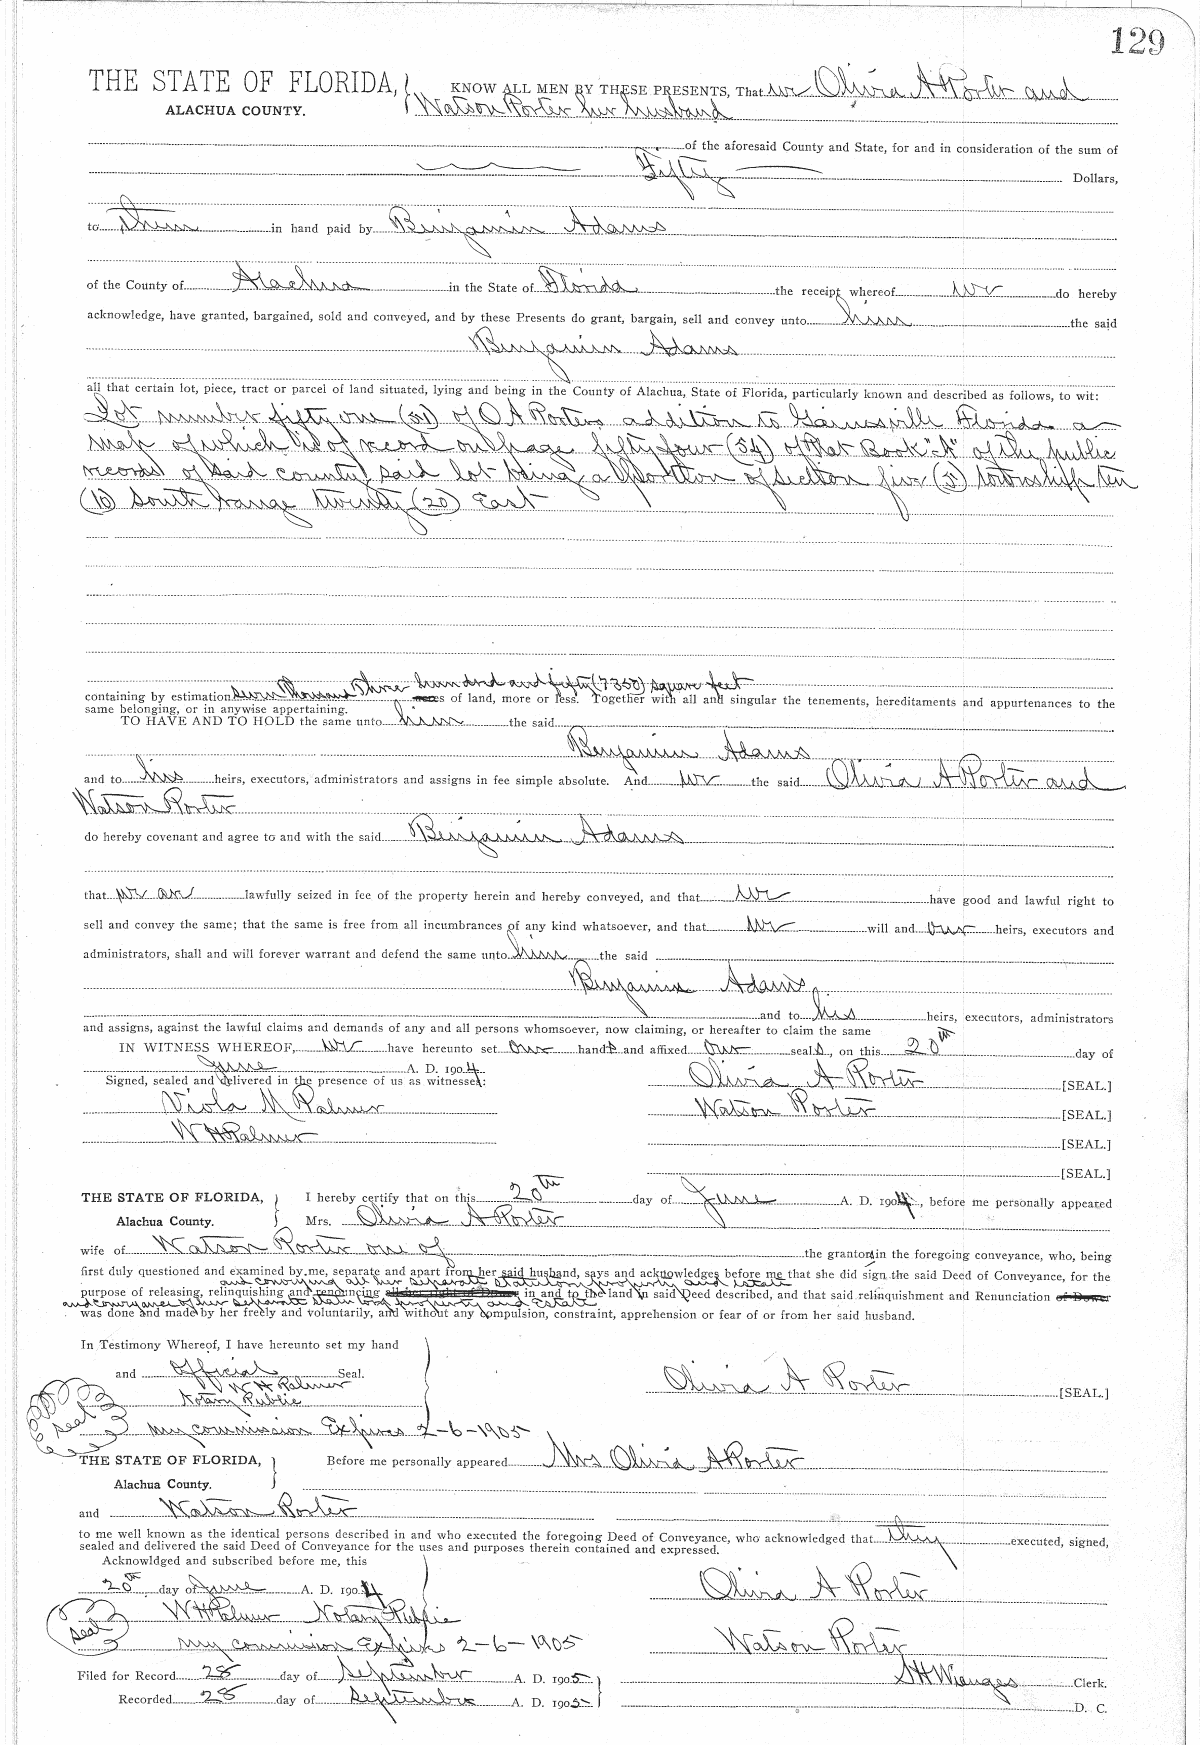 129
THE STATE OF FLORIDA, KNOW ALL MEN BY THESE PRESENTS, That we Olivia A Porter and
ALACHUA COUNTY. Watson Porter her husband
of the aforesaid County and State, for and in consideration of the sum of
Fifty Dollars,
to them in hand paid by Benjamin Adams
of the County of Alachua in the State of Florida the receipt whereof we do hereby
acknowledge, have granted, bargained, sold and conveyed, and by these Presents do grant, bargain, sell and convey unto him the said
Benjamin Adams
all that certain lot, piece, tract or parcel of land situated, lying and being in the County of Alachua, State of Florida, particularly known and described as follows, to wit:
Lot number fifty one (51) of O A Porters addition to Gainesville Florida a
map of which is of record on page fifty four (54) of Plat Book "A" of the public
records of said county, said lot being a portion of section five (5) township ten
(10) South range twenty (20) East
containing by estimation seven thousand three hundred and fifty (7350) square feet
acres of land, more or less. Together with all and singular the tenements, hereditaments and appurtenances to the
same belonging, or in anywise appertaining.
TO HAVE AND TO HOLD the same unto him the said
Benjamin Adams
and to his heirs, executors, administrators and assigns in fee simple absolute. And we the said Olivia A Porter and
Watson Porter
do hereby covenant and agree to and with the said Benjamin Adams
that we are lawfully seized in fee of the property herein and hereby conveyed, and that we have good and lawful right to
sell and convey the same; that the same is free from all incumbrances of any kind whatsoever, and that we will and our heirs, executors and
administrators, shall and will forever warrant and defend the same unto him the said
Benjamin Adams,
and to his heirs, executors, administrators
and assigns, against the lawful claims and demands of any and all persons whomsoever, now claiming, or hereafter to claim the same
IN WITNESS WHEREOF, we have hereunto set our hands and affixed our seals, on this 20th day of
June A. D. 1904.
Signed, sealed and delivered in the presence of us as witnesses: Olivia A Porter [SEAL.]
Viola M Palmer Watson Porter [SEAL.]
W H Palmer [SEAL.]
[SEAL.]
THE STATE OF FLORIDA, I hereby certify that on this 20th day of June A. D. 1904, before me personally appeared
Alachua County. Mrs. Olivia A Porter
wife of Watson Porter one of the grantors in the foregoing conveyance, who, being
first duly questioned and examined by me, separate and apart from her said husband, says and acknowledges before me that she did sign the said Deed of Conveyance, for the
and conveying all her separate statutory property and estate
purpose of releasing, relinquishing and renouncing all her right of Dower in and to the land in said Deed described, and that said relinquishment and Renunciation of Dower
and conveyance of her separate statutory property and Estate
was done and made by her freely and voluntarily, and without any compulsion, constraint, apprehension or fear of or from her said husband.
In Testimony Whereof, I have hereunto set my hand
and official Seal. Olivia A Porter [SEAL.]
W H Palmer
Notary Public
Seal
My commission Expires 2-6-1905
THE STATE OF FLORIDA, Before me personally appeared Mrs Olivia A Porter
Alachua County.
and Watson Porter
to me well known as the identical persons described in and who executed the foregoing Deed of Conveyance, who acknowledged that they executed, signed,
sealed and delivered the said Deed of Conveyance for the uses and purposes therein contained and expressed.
Acknowldged and subscribed before me, this
20th day of June A. D. 1904 Olivia A Porter
W H Palmer Notary Public
Seal
My commission Expires 2-6-1905 Watson Porter
Filed for Record 28 day of September A. D. 1905 S H Wienges Clerk.
Recorded 28 day of September A. D. 1905 D. C.